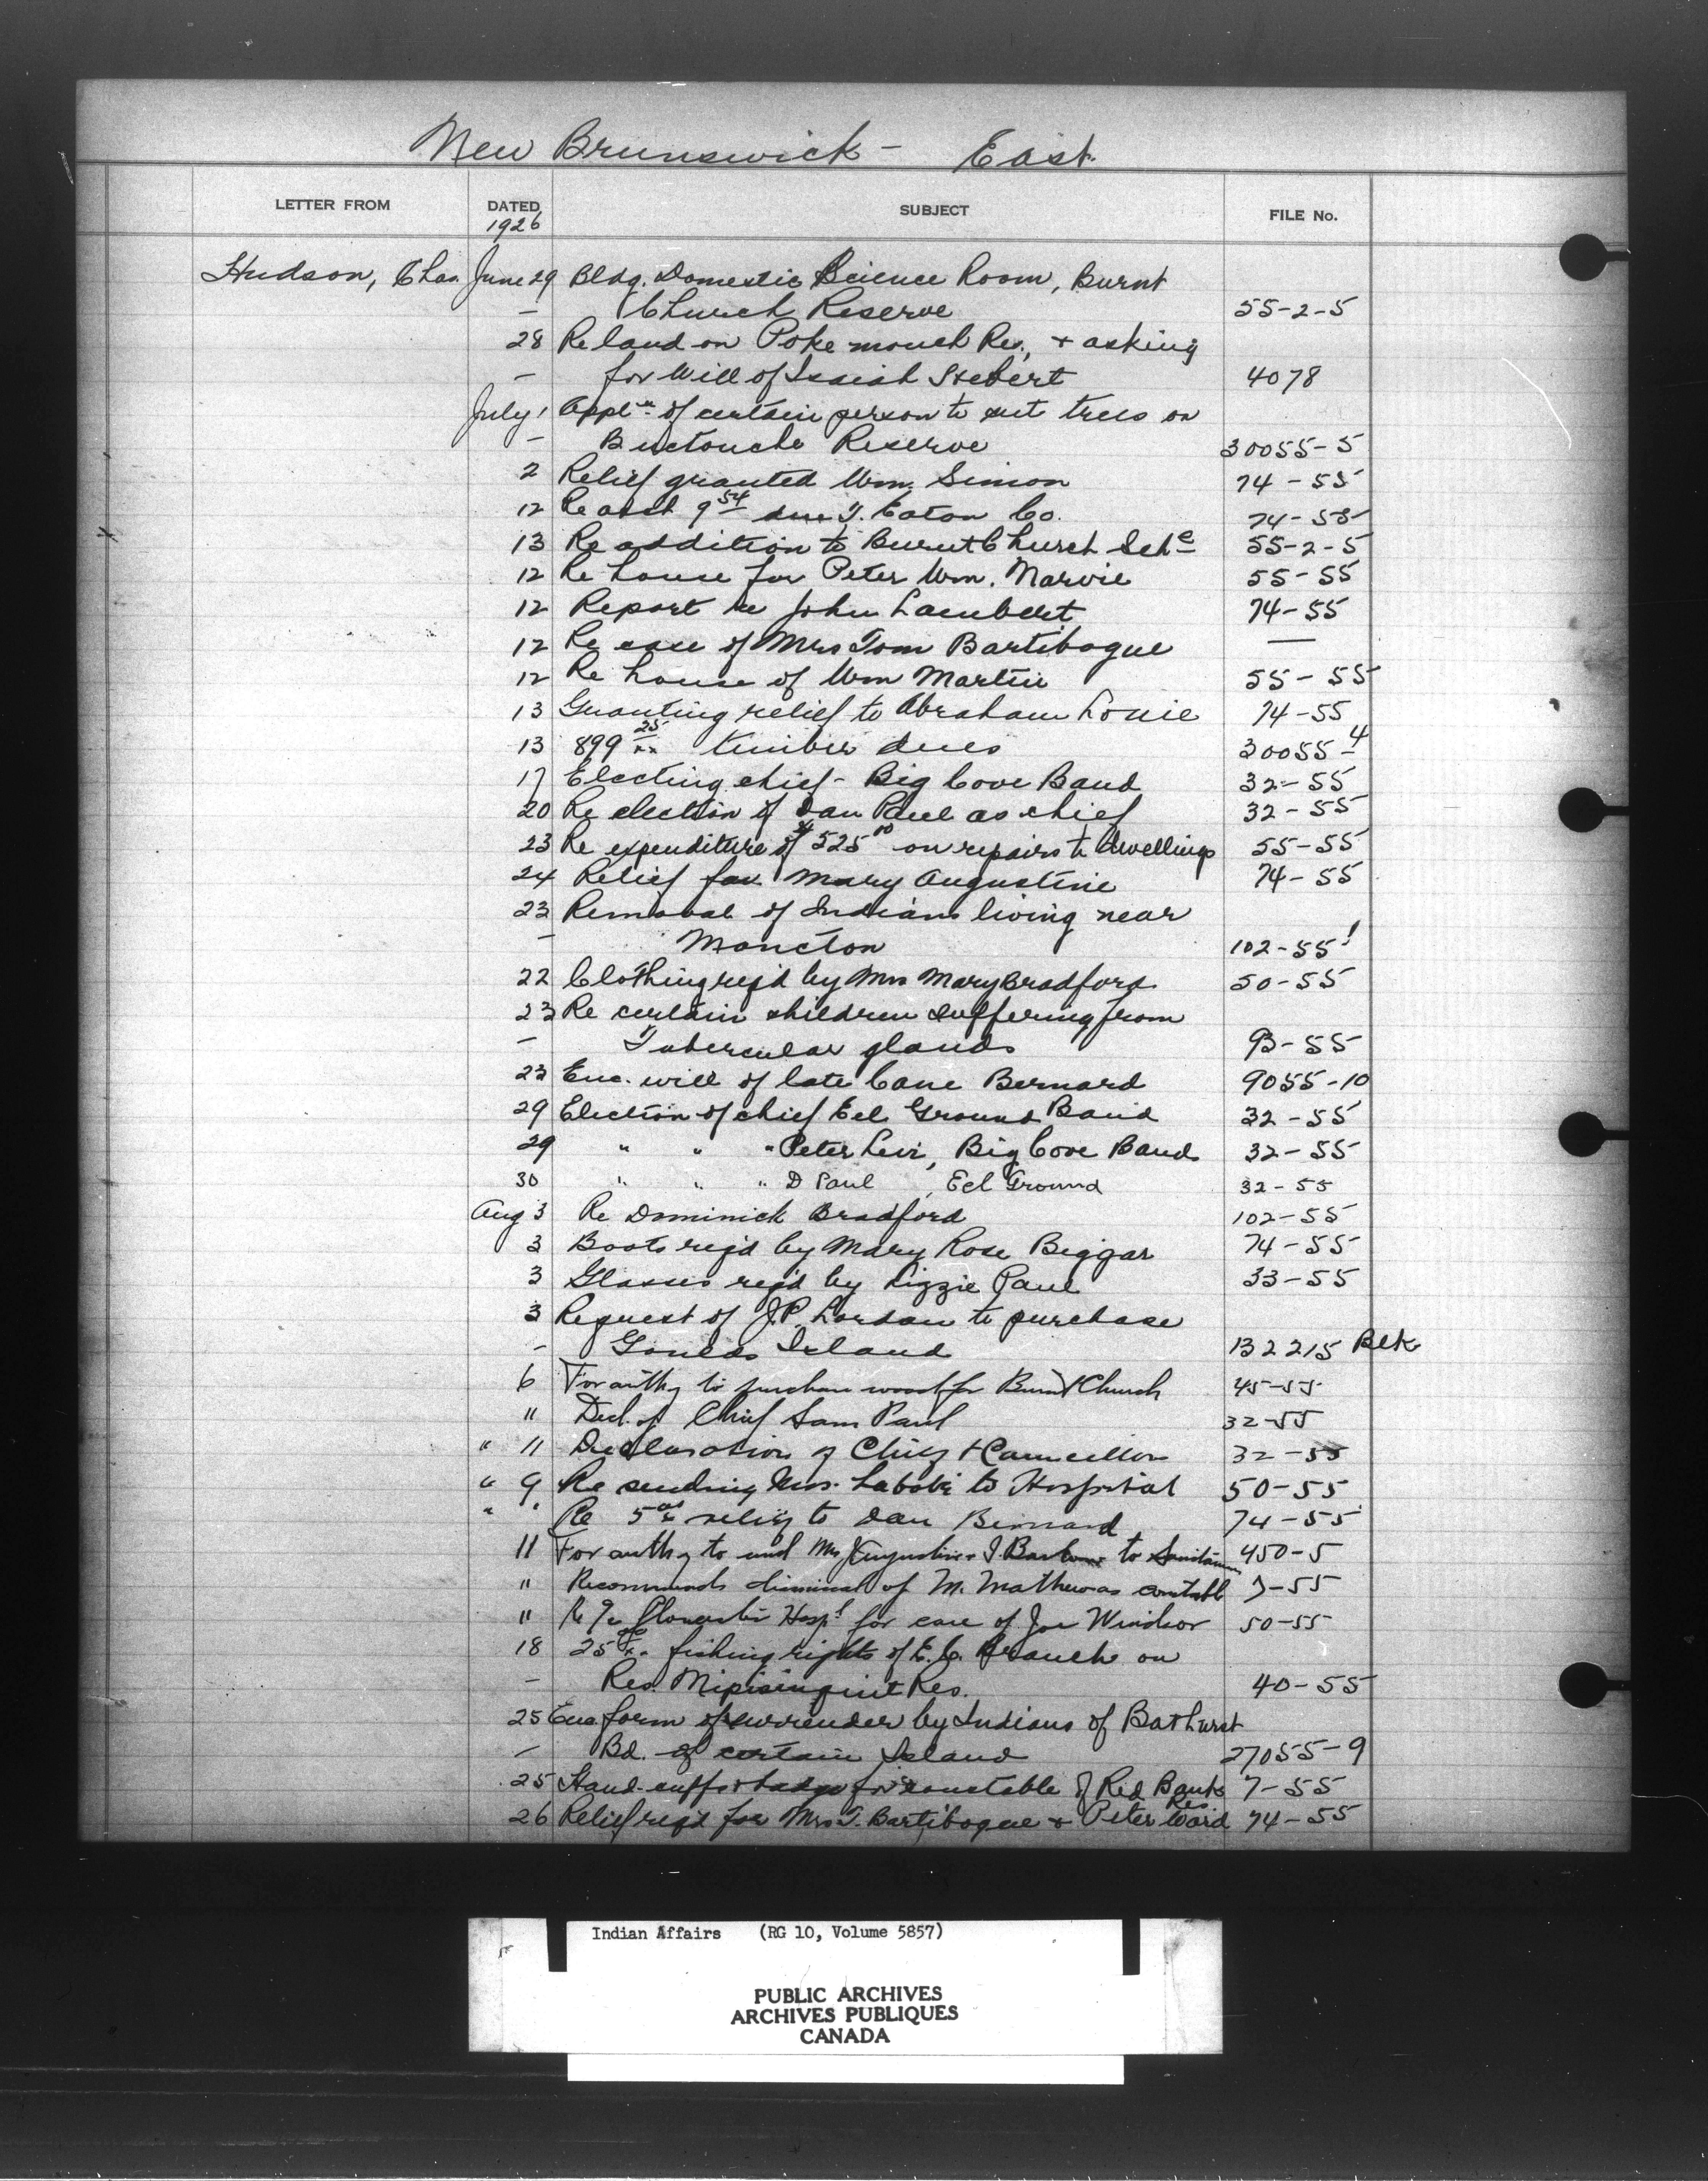 New Brunswick - East
LETTER FROM DATED SUBJECT FILE No.
1926
Hudson, Chas June 29 Bldg. Domestic Science Room, Burnt
- Church Reserve 55-2-5
28 Re land on Pokemouch Res., + asking
- for Will of Isaiah Hebert 4078
July 1 Appln of certain person to cut trees on
- Buctouche Reserve 30055-5
2 Relief granted Wm. Simon 74-55
12 Re acct 9 54 due T. Eaton Co. 74-55
13 Re addition to Burnt Church Sch 55-2-5
12 Re house for Peter Wm. Narvie 55-55
12 Report re John Lambert 74-55
12 Re case of Mrs Tom Bartibogue —
12 Re house of Wm Martin 55-55
13 Granting relief to Abraham Louie 74-55
13 899 25 xx timber dues 30055-4
17 Electing chief - Big Cove Band 32-55
20 Re election of Dan Paul as chief 32-55
23 Re expenditure of $525 00 on repairs to dwellings 55-55
24 Relief for Mary Augustine 74-55
23 Removal of Indians living near
- Moncton 102-55-1
22 Clothing req'd by Mrs Mary Bradford 50-55
23 Re certain children suffering from
- Tubercular glands 93-55
23 Enc. will of late Cane Bernard 9055-10
29 Election of chief Eel Ground Band 32-55
29 " " " Peter Levi, Big Cove Band 32-55
30 " " " D Paul, Eel Ground 32-55
Aug 3 Re Dominick Bradford 102-55
3 Boots req'd by Mary Rose Beggar 74-55
3 Glasses req'd by Lizzie Paul 33-55
3 Request of J.P. Lordan to purchase
- Goulds Island 132215 Blk
6 For authy to purchase wood for Burnt Church 45-55
11 Decl. of Chief Sam Paul 32-55
" 11 Declaration of Chief + Councillor 32-55
" 9 Re sending Mrs. to Hospital 50-55
" " Re 5 00 xx relief to Dan Bernard 74-55
11 For authy to send Mrs J Augustine + J. to 450-5
" Recommends dismissal of M. Mathew as constable 7-55
" Re Hospl for care of Joe Windsor 50-55
18 25 00 xx fishing rights of E.C. Branch on
- Res. Nipisinquit Res. 40-55
25 Enc. form of surrender by Indians of Bathurst
- Bd. of certain Island 27055-9
25 Hand-cuffs + badge for constable of Red Bank Res 7-55
26 Relief req'd for Mrs T. Bartibogue + Peter Ward 74-55
Indian Affairs (RG 10, Volume 5857)
PUBLIC ARCHIVES
ARCHIVES PUBLIQUES
CANADA